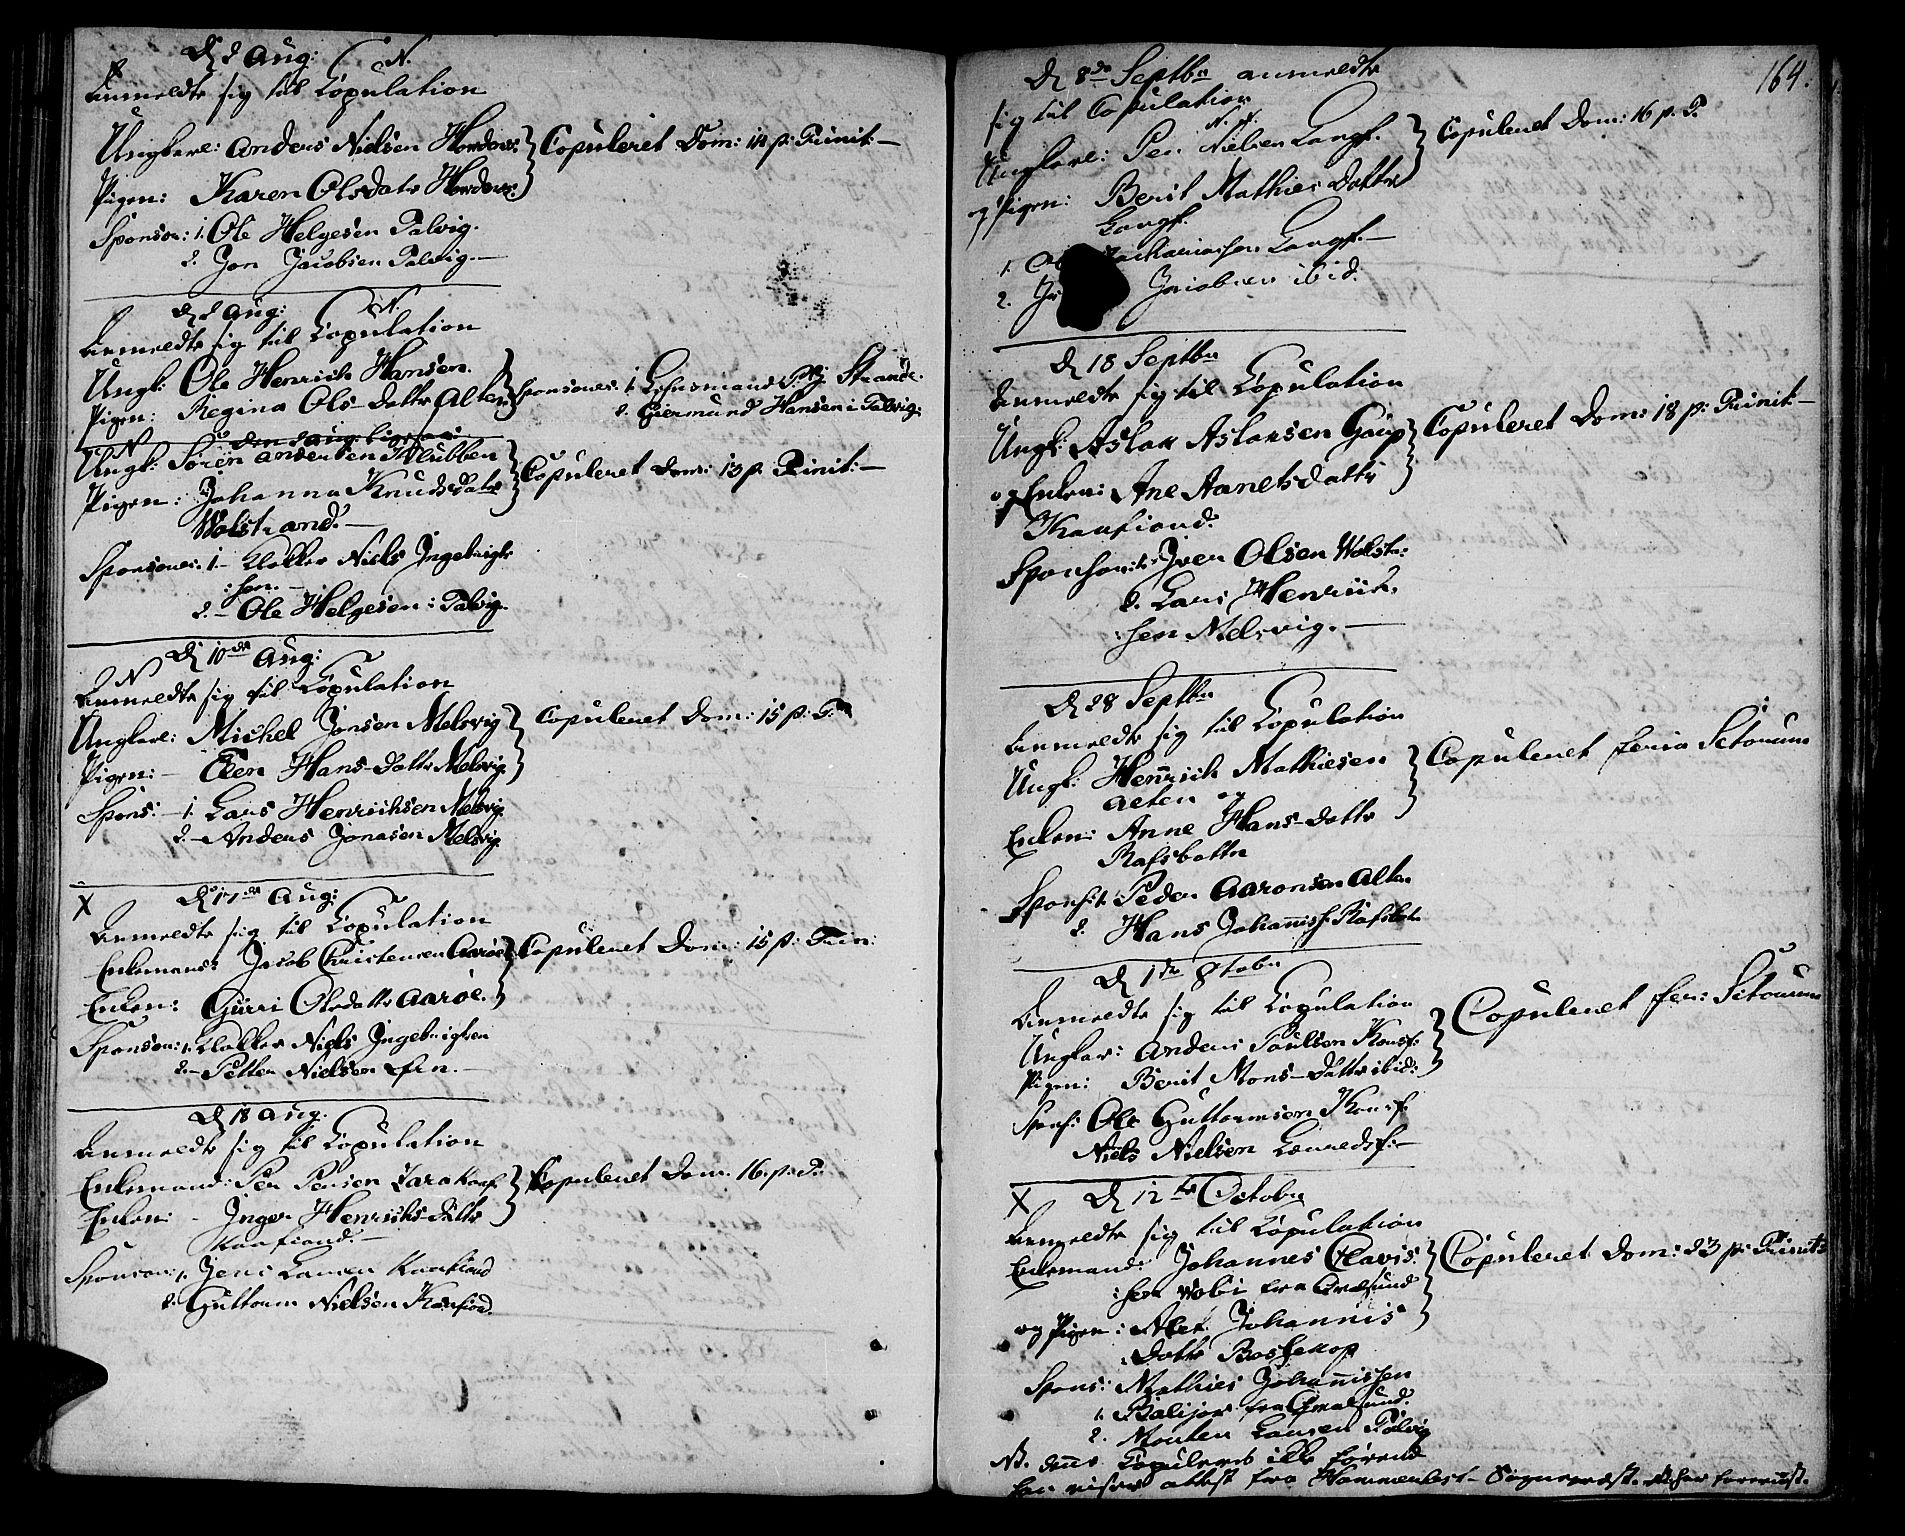 D 2 Aug: N.
Anmeldte sig til Copulation
Ungkarl: Anders Nielsen Hordew: Copuleret Dom: 12 p: Trinit:—
Pigen: Karen Olsdatr
Sponsor: 1. Ole Helgesen Talvig.
2. Jon Jacobsen Talvig.—
D 2 Aug: N.
Anmeldte sig til Copulation
Ungk: Ole Henrich Hansen.
Pigen: Regina Ols-Dattr Alten
Sponsores: 1. Lehnsmand Strand.
2. Giermund Hansen i Talvig:
N den 2 Aug:
Ungk: Sören Andersen Klubben
Pigen: Johanna Knudsdatr Copuleret Dom: 13 p. Trinit:—
Wolstrand.—
Sponsores: 1— Klokker Niels Ingebrigt-
:sen.—
2.— Ole Helgesen: Talvig.
N D 10de Aug:
Anmeldte sig til Copulation
Ungkarl: Michel Jonsen Melsvig Copuleret Dom: 15 p: T
Pigen:— Elen Hans-Dattr Melsvig
Spons:— 1. Lars Henrichsen Melsvig.
2.— Anders Jonasen Melsvig.
X D 17de Aug:
Anmeldte sig til Copulation
Enkemand: Jacob Christensen Aaröe Copuleret Dom: 15 p: Trin:
Enken: Gurri Olsdattr Aaröe.
Sponsor: 1. Klokker Niels Ingebrigtsen
2.— Petter Nielsen
D 18 Aug.
Anmeldte sig til Copulation
Enkemand: Per Persen Copuleret Dom. 16. p. T.
Enken: - Inger Henrichs-Dattr
Kaafiord.—
Sponsor: 1. Jens Larsen Kaafiord
2. Guttorm Nielsen Kaafiord.
164.
D 8de Septbr anmeldte
sig til Copulation
Ungkarl: Per Nielsen Langf. Copuleret Dom: 16 p. T.
og Pigen: Berit Mathies Dattr
Langf.
1. Zachariasen Langf.—
2. Jacobsen ibid.
D 18 Septbr
Anmeldte sig til Copulation
Ungk: Aslak Aslaksen Gaup Copuleret Dom: 18 p: Trinit:—
og Enken: Ane Aanetsdattr
Kaafiord.
Sponsor: 1. Iver Olsen Wolst:
2. Lars Henrich-
:sen Melsvig.—
D 28 Septbr
Anmeldte sig til Copulation
Ungk: Henrich Mathiesen Copuleret feria Sctorum
Alten og
Enken: Anne Hans-Dattr
Rafsbottn
Spons: 1. Peder Aaronsen Alten
2. Hans Johannisf. Rafsbotn
D 1de 8tobr
Anmeldte sig til Copulation Copuleret fer: Sctorum
Ungkar: Anders Poulsen Kaaf:
Pigen: Berit Mons-Dattr ibid:
Spons: Ole Guttormsen Kaaf.
Niels Nielsen
X D 12te Octobr
Anmeldte sig til Copulation
Enkemand: Johannes Clavis: Copuleret Dom: 23 p: Trinit:
:sen fra Qvalsund
og Pigen: Johannis
Dattr Bossekop
Spons: Mathies Johannissen
1. fra Qvalsund.
2. Morten Larsen Talvig
NB. denne Copuleres ikke förend
han viser attest fra Hammerfest-Sognepræst.